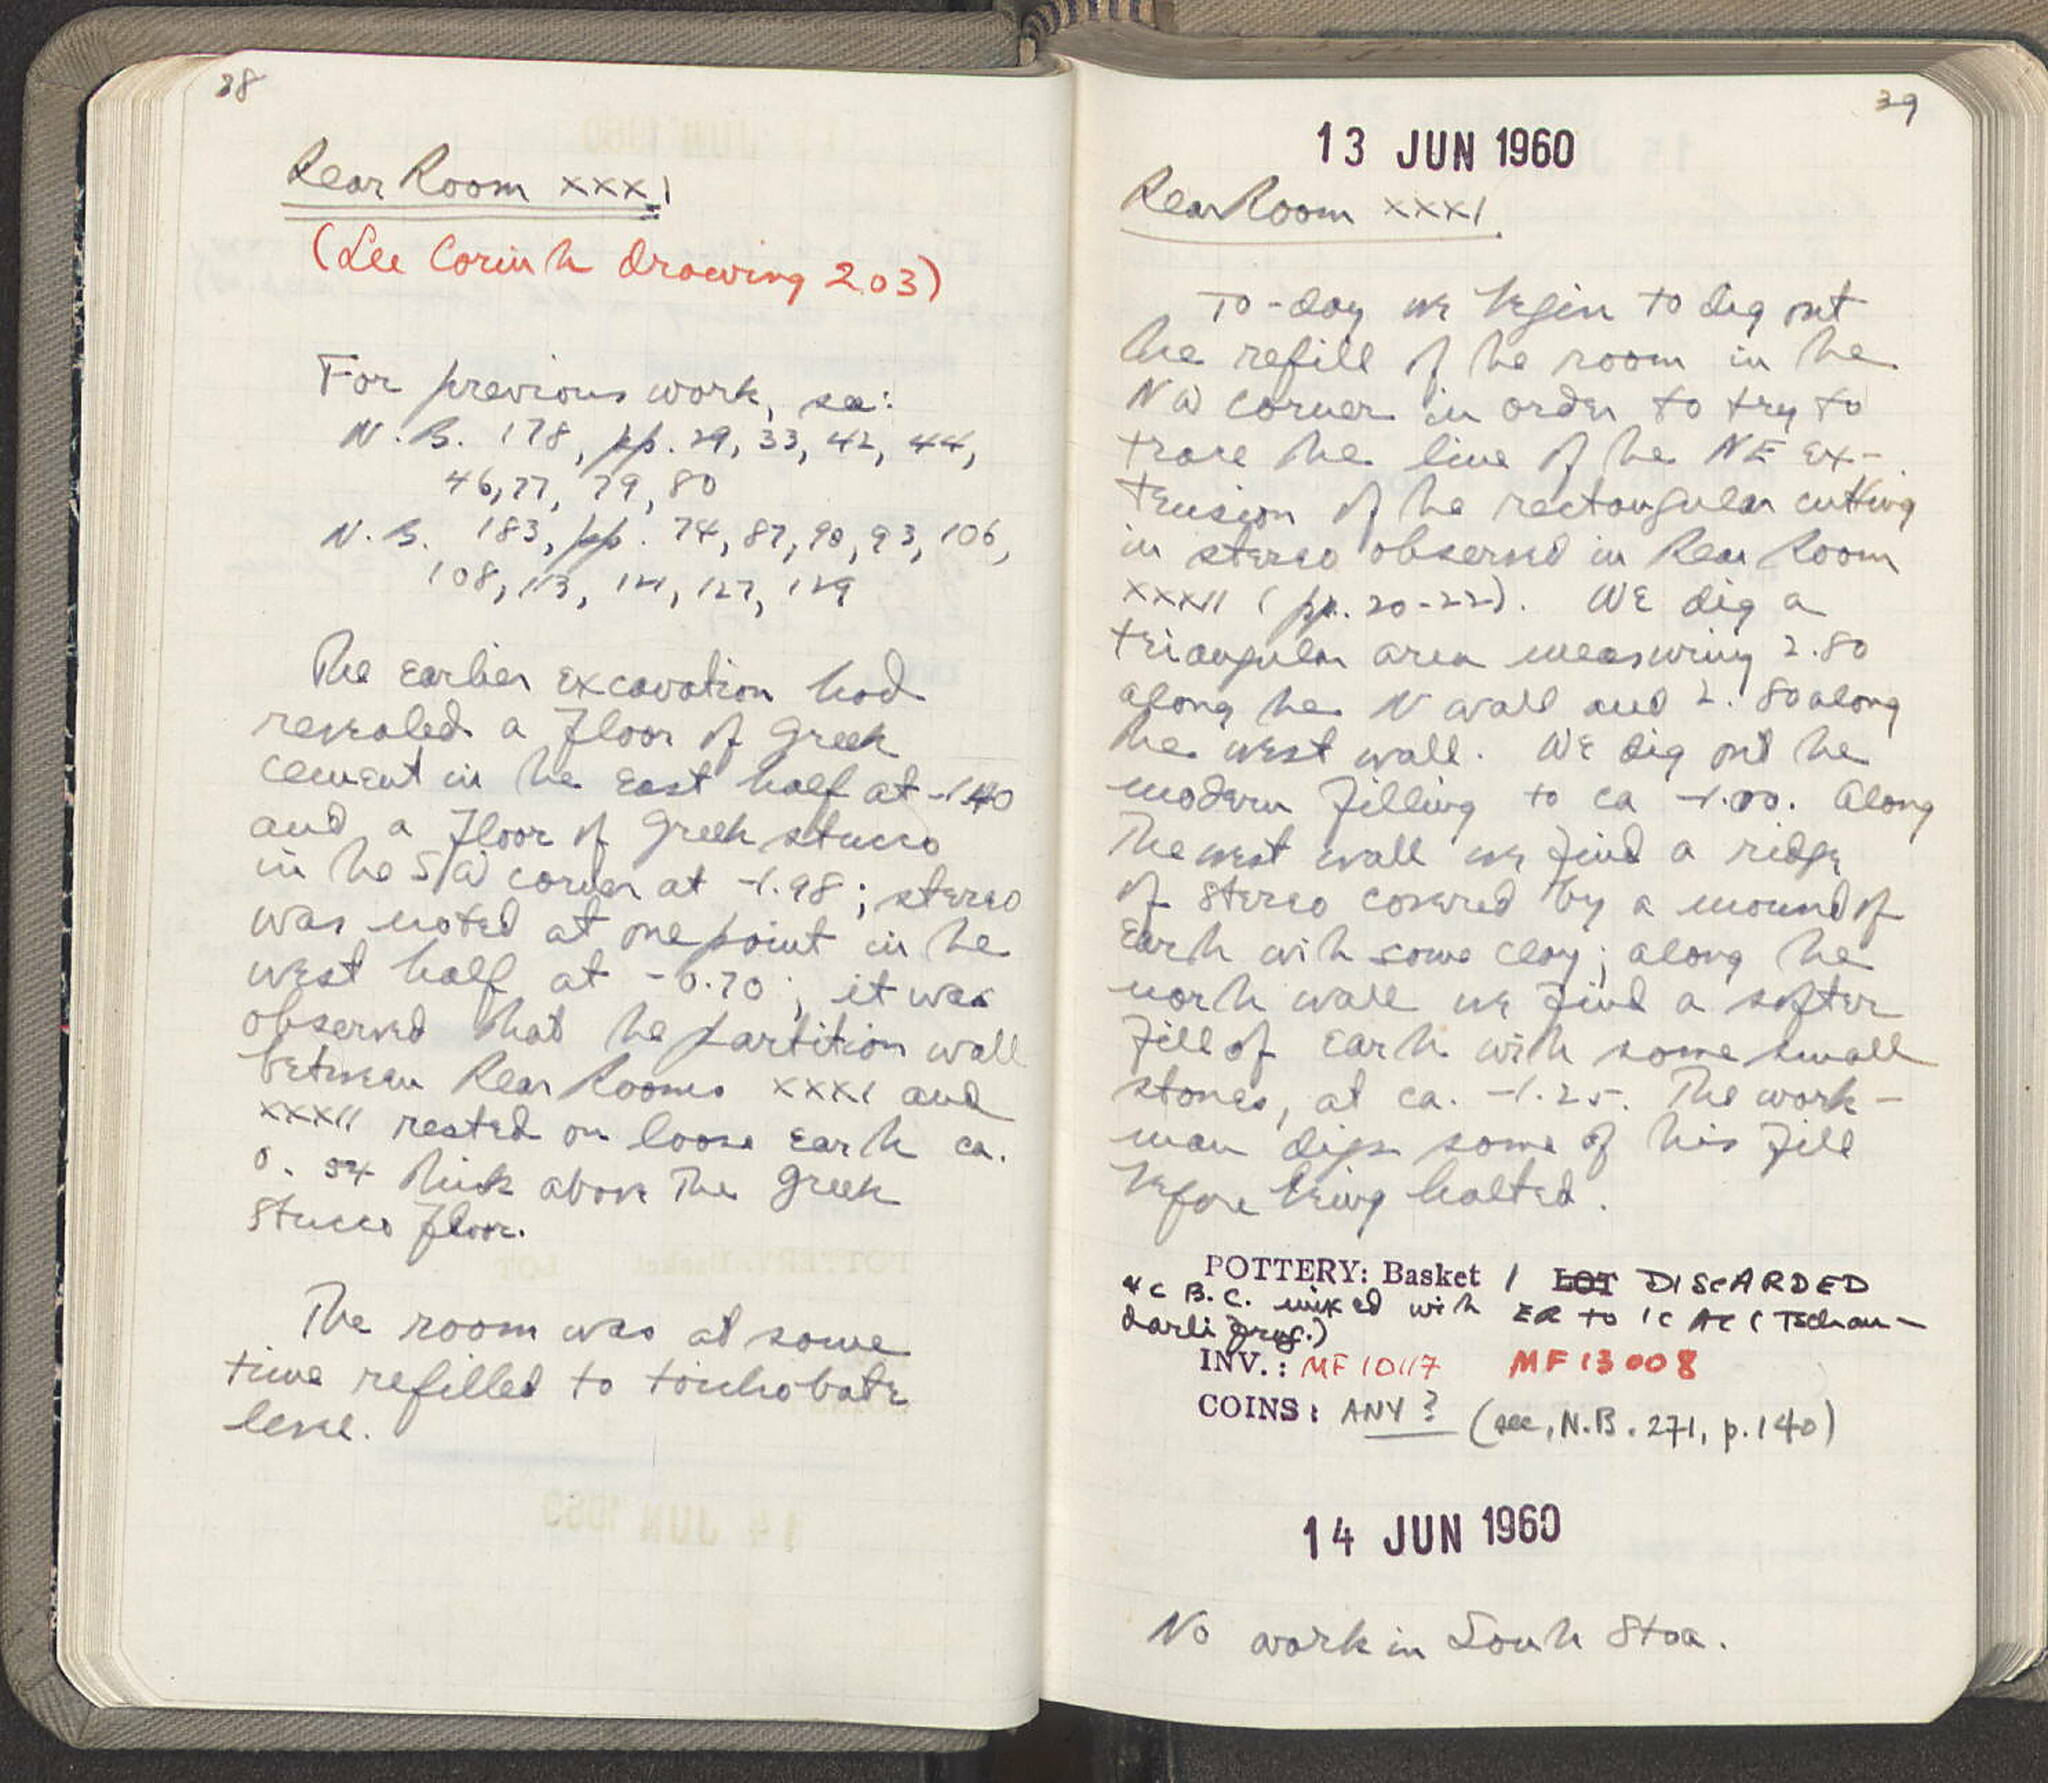 38
Rear Room XXXI
(See Corinth drawing 203)
For previous work, see:
N.B. 178, pp. 29, 33, 42, 44,
46, 77, 79, 80
N.B. 183, pp. 74, 87, 90, 93, 106,
108, 113, 121, 127, 129
The earlier excavation had
revealed a floor of Greek
cement in the east half at -1.40
and a floor of Greek stucco
in the SW corner at -1.98; stereo
was noted at one point in the
west half at -0.70; it was
observed that the partition wall
between Rear Rooms XXXI and
XXXII rested on loose earth ca.
0.54 thick above the Greek
stucco floor.
The room was at some
time refilled to toichobate
level.
39
13 JUN 1960
Rear Room XXXI.
To-day we begin to dig out
the refill of the room in the
NW corner in order to try to
trace the line of the NE ex-
tension of the rectangular cutting
in stereo observed in Rear Room
XXXII (pp. 20-22). We dig a
triangular area measuring 2.80
along the N wall and 2.80 along
the west wall. We dig out the
modern filling to ca -1.00. Along
the west wall we find a ridge
of stereo covered by a mound of
earth with some clay; along the
north wall we find a softer
fill of earth with some small
stones, at ca. -1.25. The work-
man digs some of this fill
before being halted.
POTTERY: Basket 1 LOT DISCARDED
4c B.C. mixed with ER to 1c AC (Tschan-
darli frag.)
INV.: MF 10117 MF 13008
COINS: ANY? (see, N.B. 271, p. 140)
14 JUN 1960
No work in South Stoa.